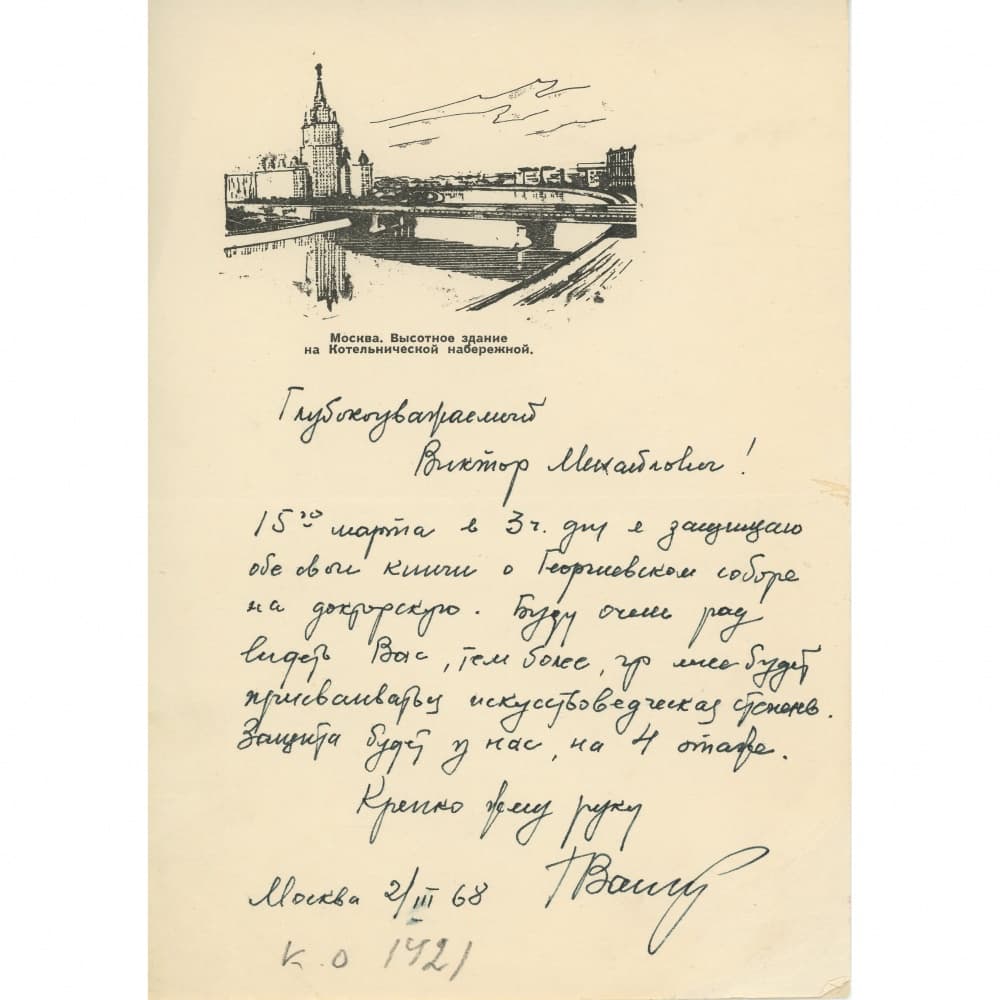 Москва. Высотное здание
на Котельнической набережной.
Глубокоуважаемый
Виктор Михайлович!
15го марта в 3ч. дня я защищаю
обе свои книги о Георгиевском соборе
на докторскую. Буду очень рад
видеть Вас, тем более, что мне будет
присваиваться искусствоведческая степень.
Защита будет у нас, на 4 этаже.
Крепко жму руку
Москва 2/III 68
К.О 1921